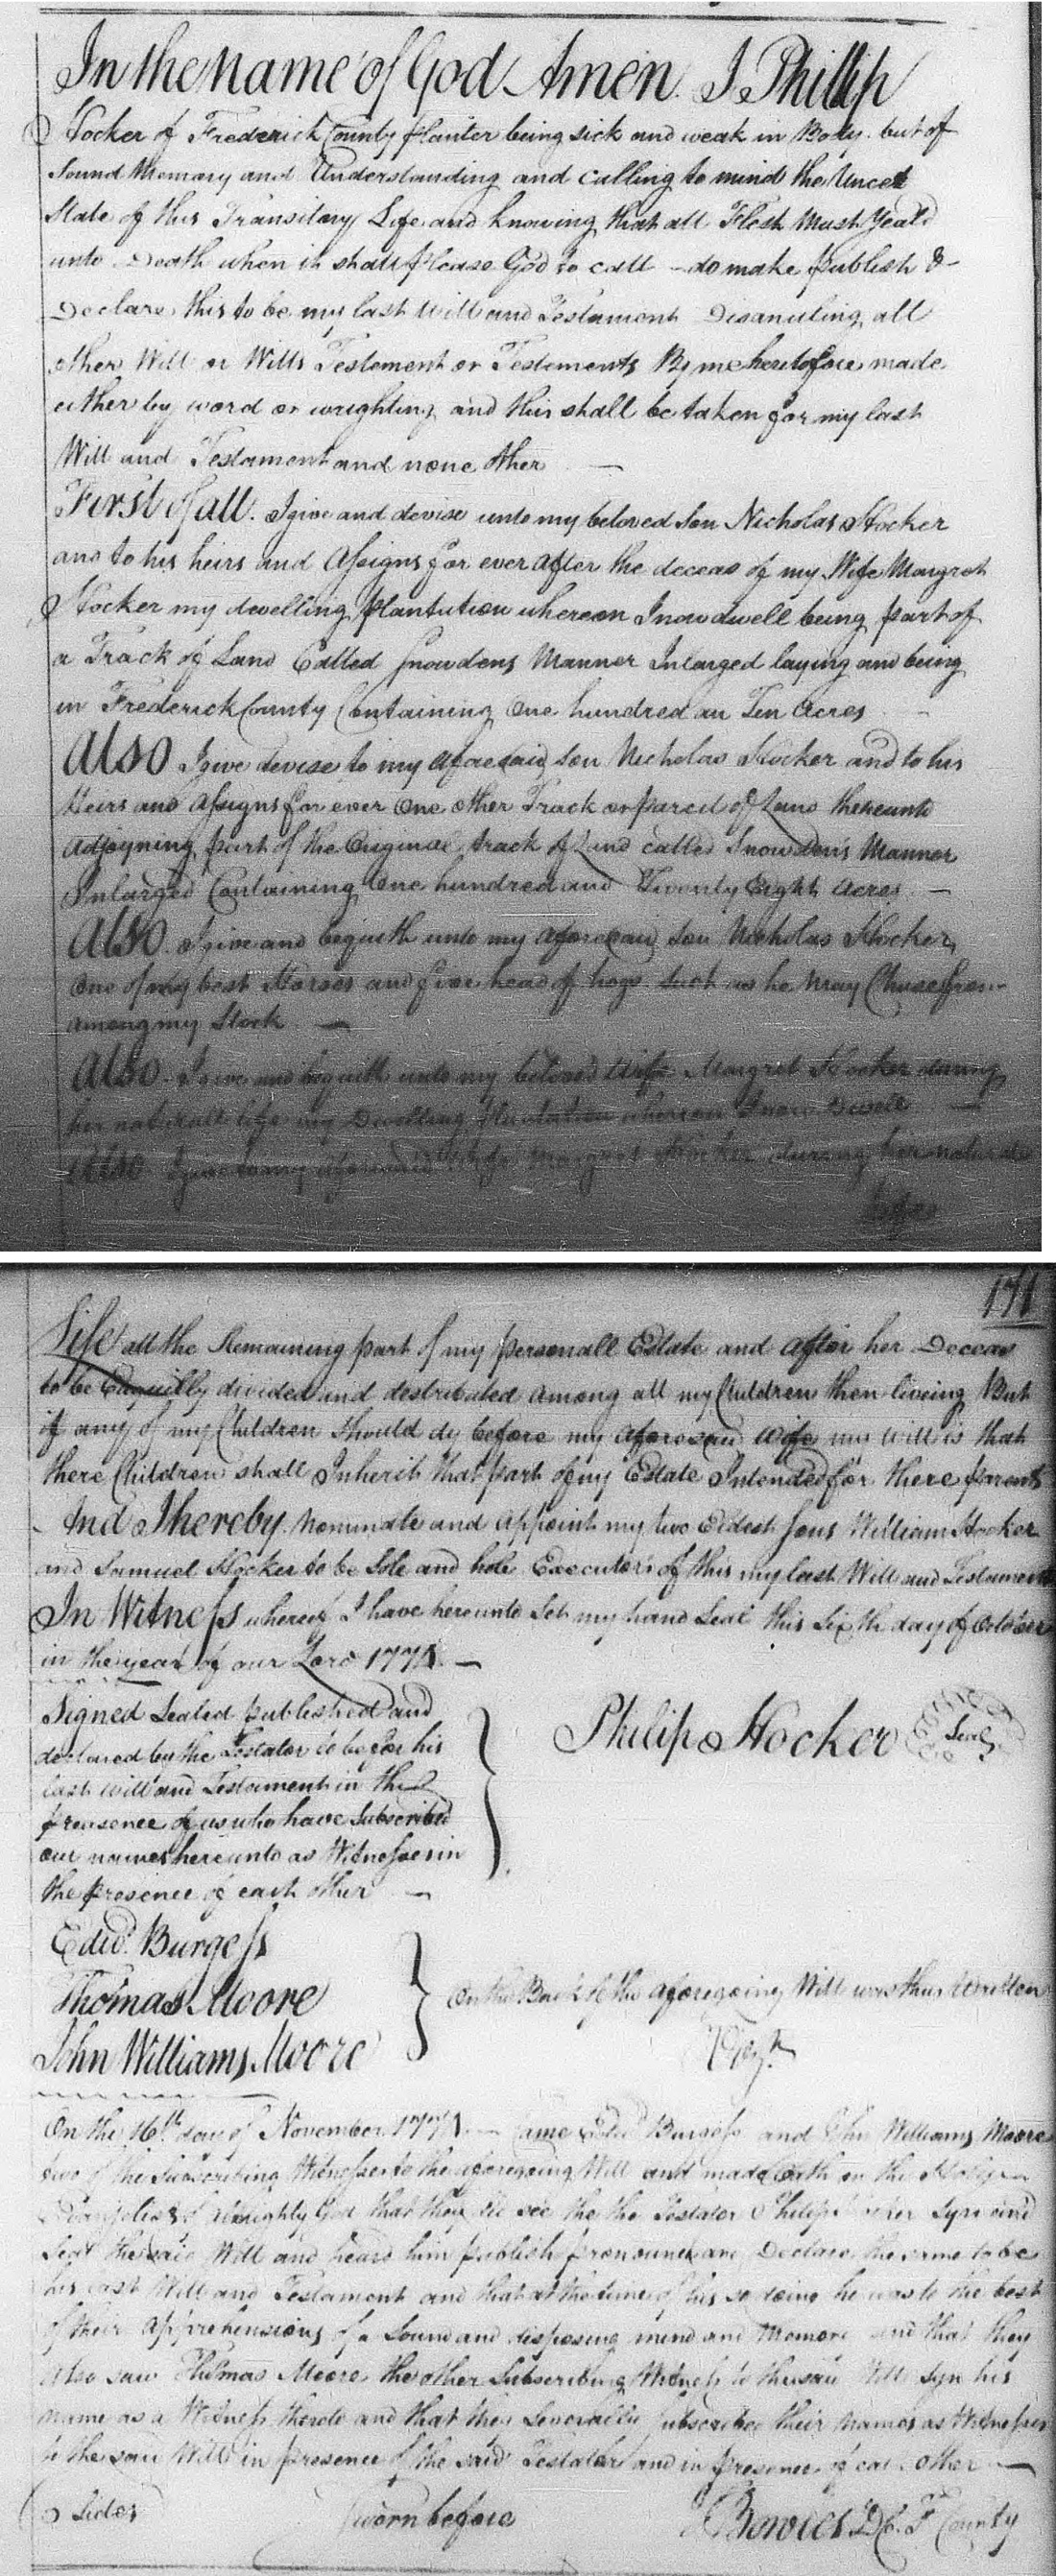 In the Name of God Amen. I Phillip
Hocker of Frederick County planter being sick and weak in Body. but of
Sound Memory and Understanding and calling to mind the Uncert
State of this Transitory Life and knowing that all Flesh Must Yeald
unto Death when it shall please God to call - do make publish &
Declare this to be my last Will and Testament Disanuling all
other Will or Wills Testement or Testements By me heretofore made
either by word or wrighting and this shall be taken for my last
Will and Testament and none other
First of all. I give and devise unto my beloved son Nicholas Hocker
and to his heirs and Assigns for ever after the deceas of my Wife Margret
Hocker my dwelling plantution whereon I now dwell being part of
a Track of Land Called Snowdens Manner Inlarged laying and being
in Frederick County Containing One hundred an Ten Acres
Also I give devise to my aforesaid son Nicholas Hocker and to his
Heirs and Assigns for ever One other Track or parcel of Land thereunto
Adjoyning part of the Original track of Land called Snowden's Manner
Inlarged Containing One hundred and Twenty Eight Acres. —
Also. I give and bequith unto my aforesaid son Nicholas Hocker,
One of my best Horses and five head of hogs such as he may Chuse from
among my Stock —
Also. I give and bequith unto my beloved Wife Margret Hocker during
her naturall life my Dwelling Plantation whereon I now Dwell —
Also I give to my aforesaid Wife Margret Hocker during her naturale
Life
171
Life all the Remaining part of my personall Estate and after her Deceas
to be Eaquilly divided and destributed among all my Children then liveing But
if any of my Children should dy before my aforesaid Wife my will is that
there Children shall Inherit that part of my Estate Intended for there parents
And I hereby Nominate and appoint my two Eldest sons William Hocker
and Samuel Hocker to be Sole and hole Executors of this my last Will and Testament
In Witness whereof I have hereunto Set my hand Seal this Sixth day of October
in the year of our Lord 177
Signed Sealed published and
declared by the Testator to be for his
last will and Testament in the
preasence of us who have subscribed
our names hereunto as Witnesses in
the presence of each other —
Philip Hocker Seal
Edwd. Burgess
Thomas Moore
John Williams Moore
On the Back of the aforegoing Will was thus Written
Viz.t
On the 16th day of November 177 — Came Edwd Burgess and John Williams Moore
two of the subscribing Witnesses to the aforegoing Will and made Oath on the Holy
Evangelis of Almighty God that they did see the the Testator Philip Hocker Syn and
Seal the said Will and heard him publish pronounce and Declare the same to be
his last Will and Testament and that at the time of his so doing he was to the best
of their apprehensions of a Sound and disposing mind and Memory and that they
also saw Thomas Moore the other Subscribing Witness to the said Will Syn his
name as a Witness thereto and that they severally subscribed their names as Witnesses
to the said Will in presence of the said Testator and in presence of each other —
Sides Sworn before Bowles F County